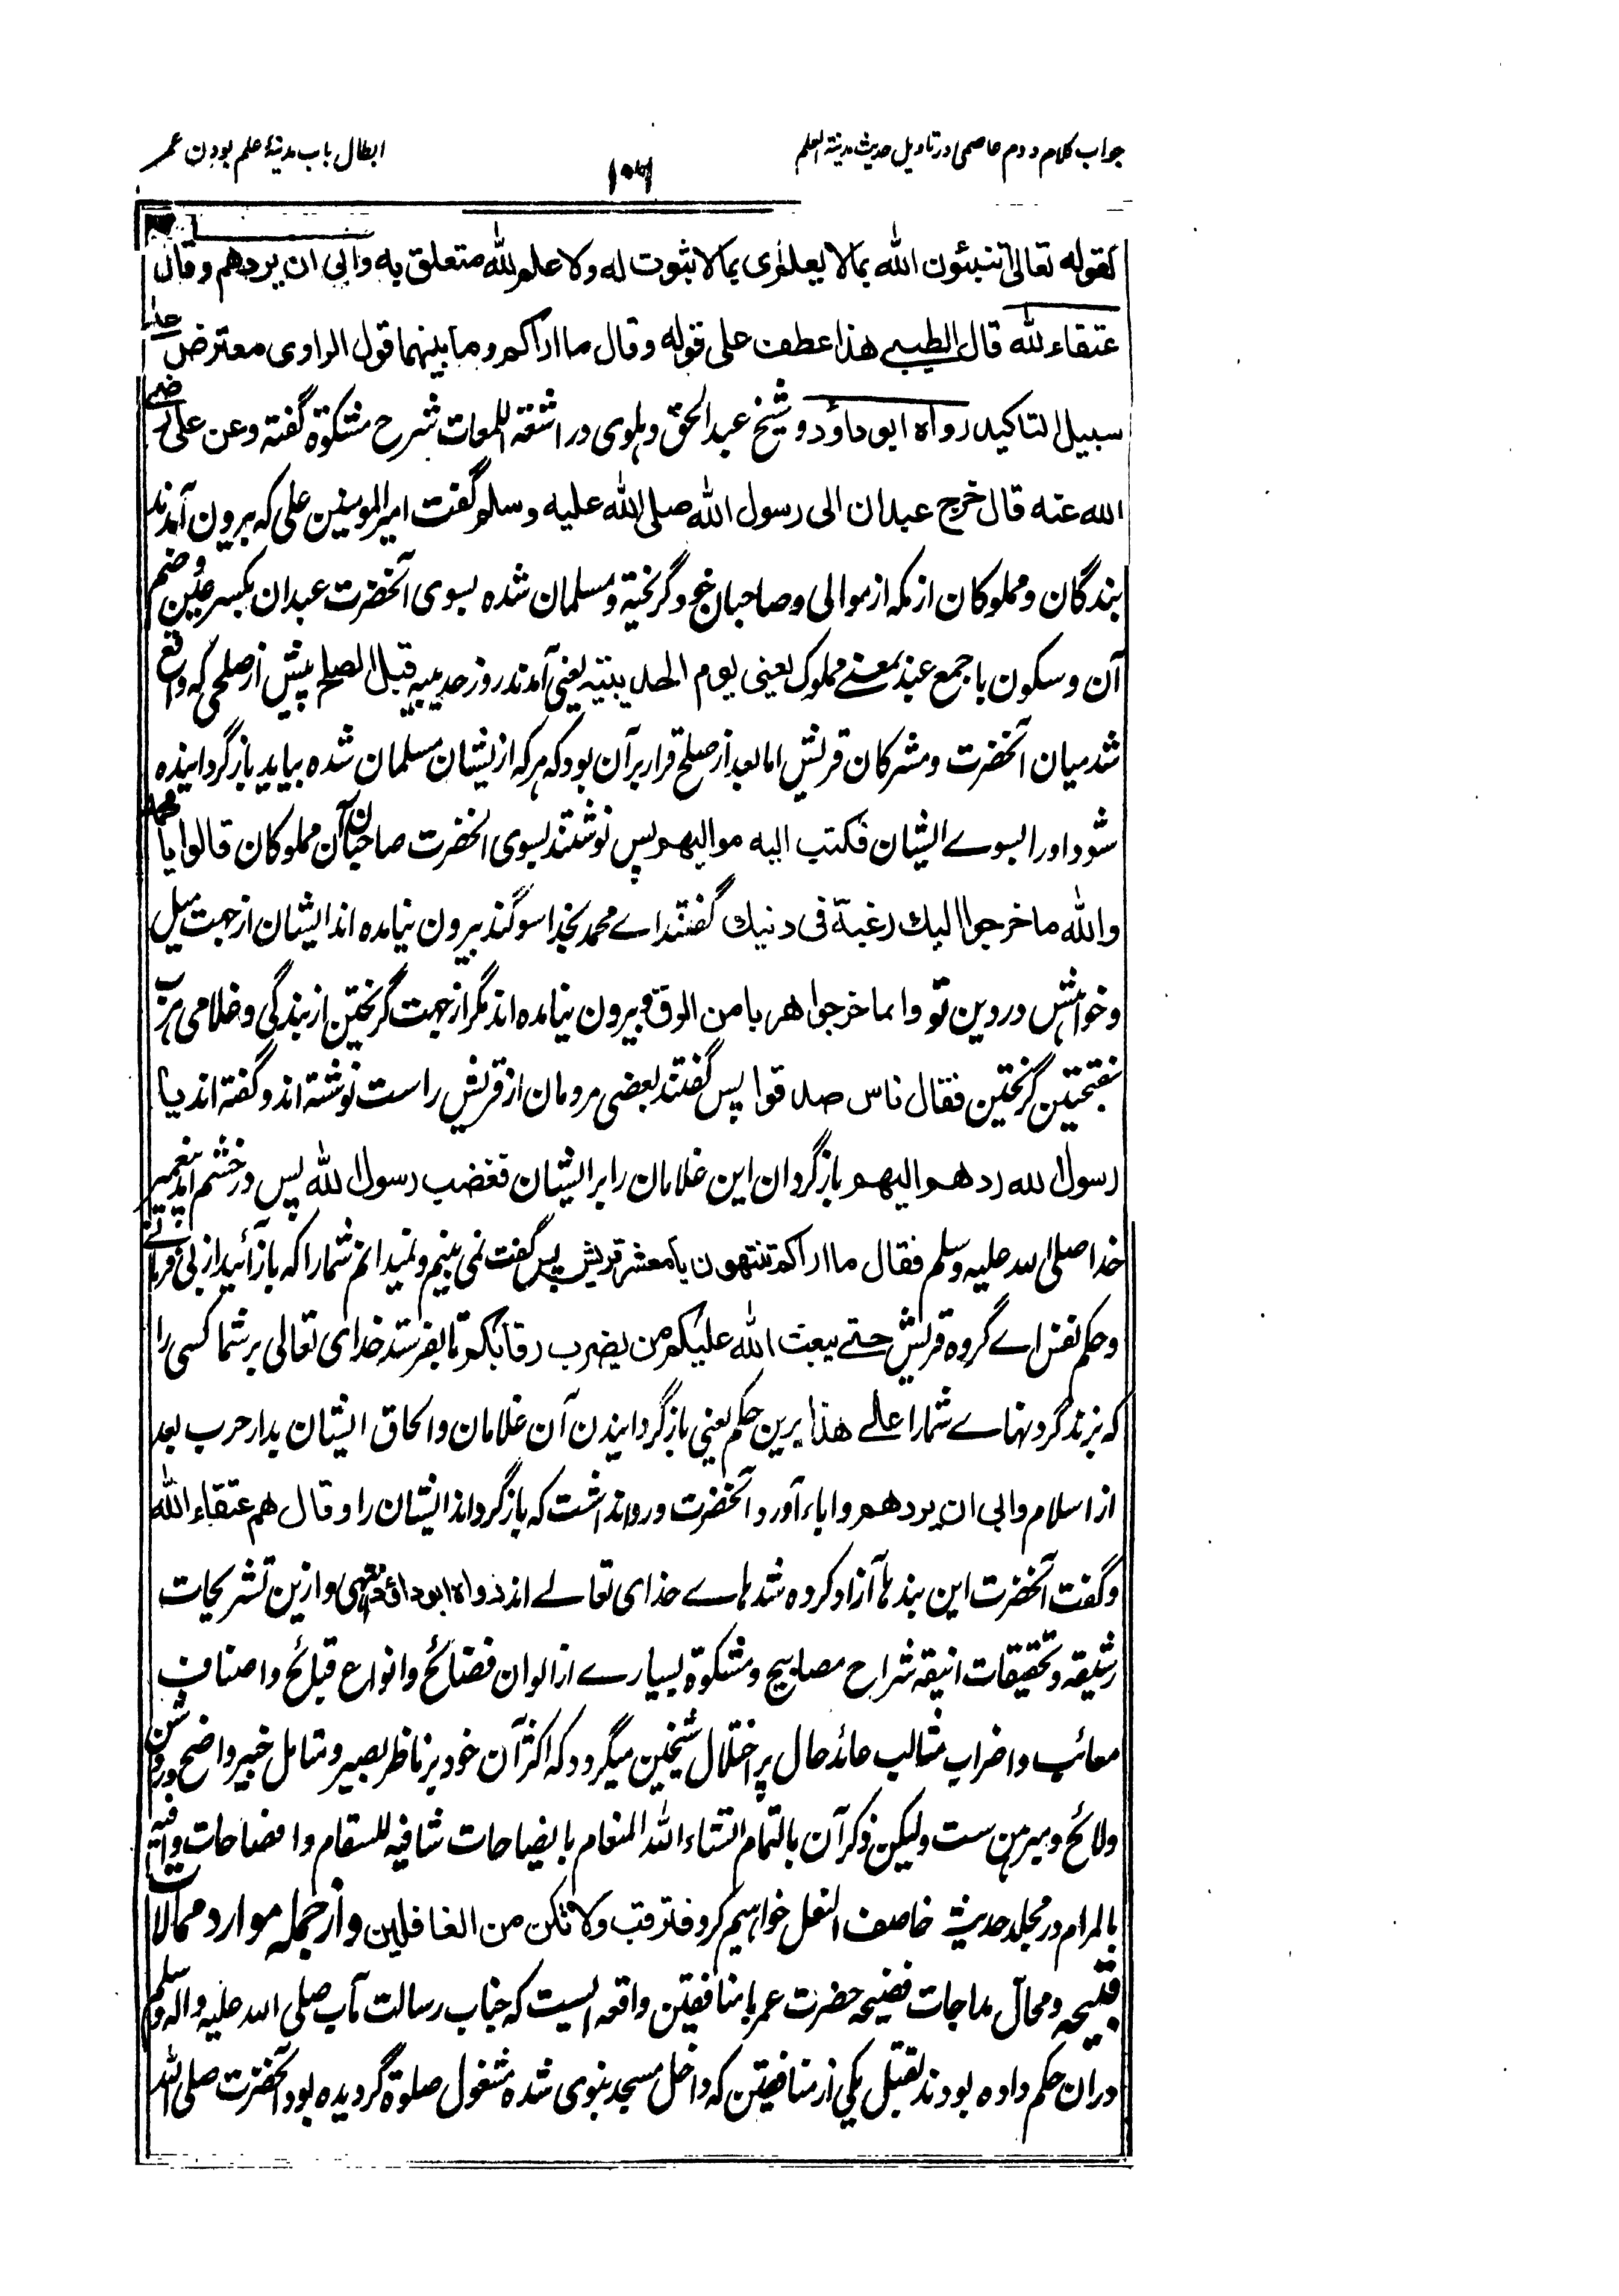 جواب کلام دوم عاصمی در تاویل حدیث مدینة العلم
۱۰۶
ابطال باب مدینۂ علم بودن عمر
کقوله تعالی اتنبئون الله بما لا یعلم ای بما لا ثبوت له ولا علم لله متعلق به وابی ان یردهم وقال
عتقاء لله قال الطیبی هذا عطف علی قوله وقال ما اراکم وما بینهما قول الراوی معترض علی
سبیل التاکید رواه ابو داؤد و شیخ عبد الحق دہلوی در اشعة اللمعات شرح مشکوة گفته وعن علی رضی
الله عنه قال خرج عبدان الی رسول الله صلی الله علیه وسلم گفت امیر المومنین علی که بیرون آمدند
بندگان و مملوکان از مکه از موالی و صاحبان خود گریخته و مسلمان شده بسوی آنحضرت عبدان بکسر عین و ضم
آن و سکون با جمع عبد بمعنے مملوک یعنی یوم الحدیبیة یعنی آمدند روز حدیبیه قبل الصلح پیش از صلحی که واقع
شد میان آنحضرت و مشرکان قریش اما بعد از صلح قرار بر آن بود که هرکه از یشان مسلمان شده بیاید باز گردانیده
شود او را بسوے ایشان فکتب الیه موالیهم پس نوشتند بسوی آنحضرت صاحبان آن مملوکان قالوا یا محمد
والله ما خرجوا الیك رغبة فی دینك گفتند اے محمد بخدا سوگند بیرون نیامده اند ایشان از جهت میل
و خواهش در دین تو وانما خرجوا هربا من الرق و بیرون نیامده اند مگر از جهت گریختن از بندگی و غلامی هرب
بفتحتین گریختن فقال ناس صدقوا پس گفتند بعضی مردمان از قریش راست نوشته اند و گفته اند یا
رسول الله ردهم الیهم باز گردان این غلامان را بر ایشان فغضب رسول الله پس در خشم آمد پیغمبر
خدا صلی الله علیه وسلم فقال ما اراکم تنتهون یا معشر قریش پس گفت نمی بینم و نمیدانم شما را که باز آئید از بی فرمانے
و حکم نفس اے گروه قریش حتے یبعث الله علیکم من یضرب رقابکم تا بفرستد خدای تعالی بر شما کسی را
که بزند گردنهاے شما را علے هذا برین حکم یعنی باز گردانیدن آن غلامان و الحاق ایشان بدار حرب بعد
از اسلام وابی ان یردهم و اباء آورد آنحضرت و روا نداشت که باز گرداند ایشان را وقال هم عتقاء الله
و گفت آنحضرت این بندها آزاد کرده شدهاے خدای تعالے اند رواه ابو داؤد انتهی و ازین تشریحات
رشیقه و تحقیقات انیقه شراح مصابیح و مشکوة بسیارے از الوان فضائح و انواع قبائح و اصناف
معائب و اضراب مثالب عائد حال پر اختلال شیخین میگردد که اکثر آن خود بر ناظر بصیر و متامل خبیر واضح و روشن
و لائح و مبرهن ست و لیکن ذکر آن بالتمام انشاء الله المنعام بایضاحات شافیه للسقام و افصاحات وافیه
بالمرام در مجلد حدیث خاصف النعل خواهیم کرد فترقب ولا تکن من الغافلین و از جمله موارد ممالات
قبیحه و محال مداجات فضیحه حضرت عمر با منافقین واقعه ایست که جناب رسالت مآب صلی الله علیه واله وسلم
دران حکم داده بودند بقتل یکی از منافقین که داخل مسجد نبوی شده مشغول صلوة گردیده بود آنحضرت صلی الله